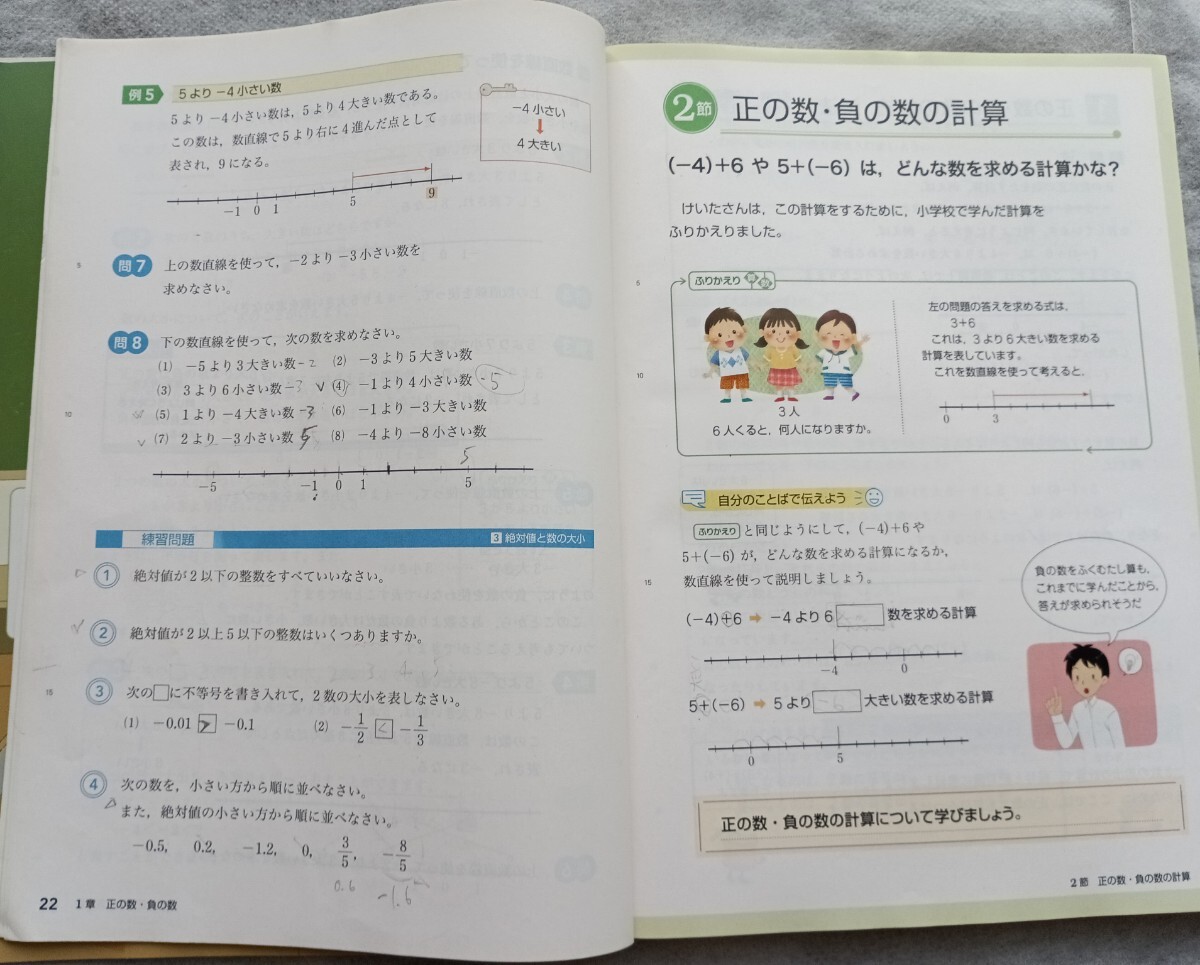 例5 5より −4小さい数
5より −4小さい数は，5より4大きい数である。
この数は，数直線で5より右に4進んだ点として
表され，9になる。
−4小さい
4大きい
−1 0 1 5 9
5
問7 上の数直線を使って，−2より −3小さい数を
求めなさい。
問8 下の数直線を使って，次の数を求めなさい。
(1) −5より3大きい数 -2 (2) −3より5大きい数
(3) 3より6小さい数 -3 (4) −1より4小さい数 -5
10
(5) 1より −4大きい数 -3 (6) −1より −3大きい数
(7) 2より −3小さい数 5 (8) −4より −8小さい数
5
−5 −1 0 1 5
練習問題 3 絶対値と数の大小
1 絶対値が2以下の整数をすべていいなさい。
2 絶対値が2以上5以下の整数はいくつありますか。
15
3 次の□に不等号を書き入れて，2数の大小を表しなさい。
(1) −0.01 > −0.1 (2) −1/2 < −1/3
4 次の数を，小さい方から順に並べなさい。
また，絶対値の小さい方から順に並べなさい。
−0.5, 0.2, −1.2, 0, 3/5, −8/5
0.6 -1.6
22 1章 正の数・負の数
2節 正の数・負の数の計算
(−4)+6 や 5+(−6) は，どんな数を求める計算かな？
けいたさんは，この計算をするために，小学校で学んだ計算を
ふりかえりました。
5
ふりかえり
10
3人
6人くると，何人になりますか。
左の問題の答えを求める式は，
3+6
これは，3より6大きい数を求める
計算を表しています。
これを数直線を使って考えると，
0 3
自分のことばで伝えよう
ふりかえり と同じようにして，(−4)+6や
5+(−6) が，どんな数を求める計算になるか，
15
数直線を使って説明しましょう。
(−4)+6 → −4より6□数を求める計算
−4 0
5+(−6) → 5より□大きい数を求める計算
0 5
負の数をふくむたし算も，
これまでに学んだことから，
答えが求められそうだ
正の数・負の数の計算について学びましょう。
2節 正の数・負の数の計算